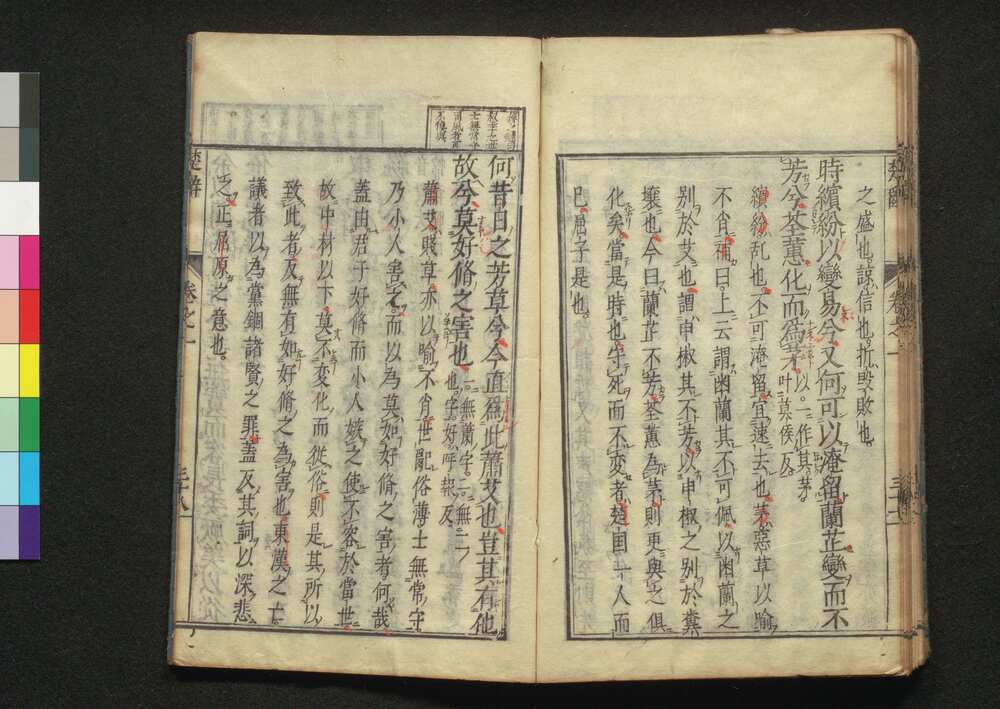 之盛也諒信也折毀敗也
時繽紛以變易兮又何可以淹留蘭芷變而不
芳兮荃蕙化而為茅以一作其茅叶莫侯反
繽紛乱也不可淹留宜速去也茅惡草以喻
不肖補曰上云謂幽蘭其不可佩以幽蘭之
別於艾也謂申椒其不芳以申椒之別於糞
壤也今曰蘭芷不芳荃蕙為茅則更與之俱
化矣當是時也守死而不变者楚国一人而
已屈子是也
何昔日之芳草兮今直為此蕭艾也豈其有他
故兮莫好脩之害也一無蕭字二無二也字好呼報反
蕭艾賤草亦以喻不肖世亂俗薄士無常守
乃小人害之而以為莫如好脩之害者何哉
蓋由君子好脩而小人嫉之使不容於當世
故中材以下莫不变化而從俗則是其所以
致此者反無有如好脩之為害也東漢之亡
議者以為黨錮諸賢之罪蓋反其詞以深悲
之正屈原之意也
楚辭
卷之一
三十八